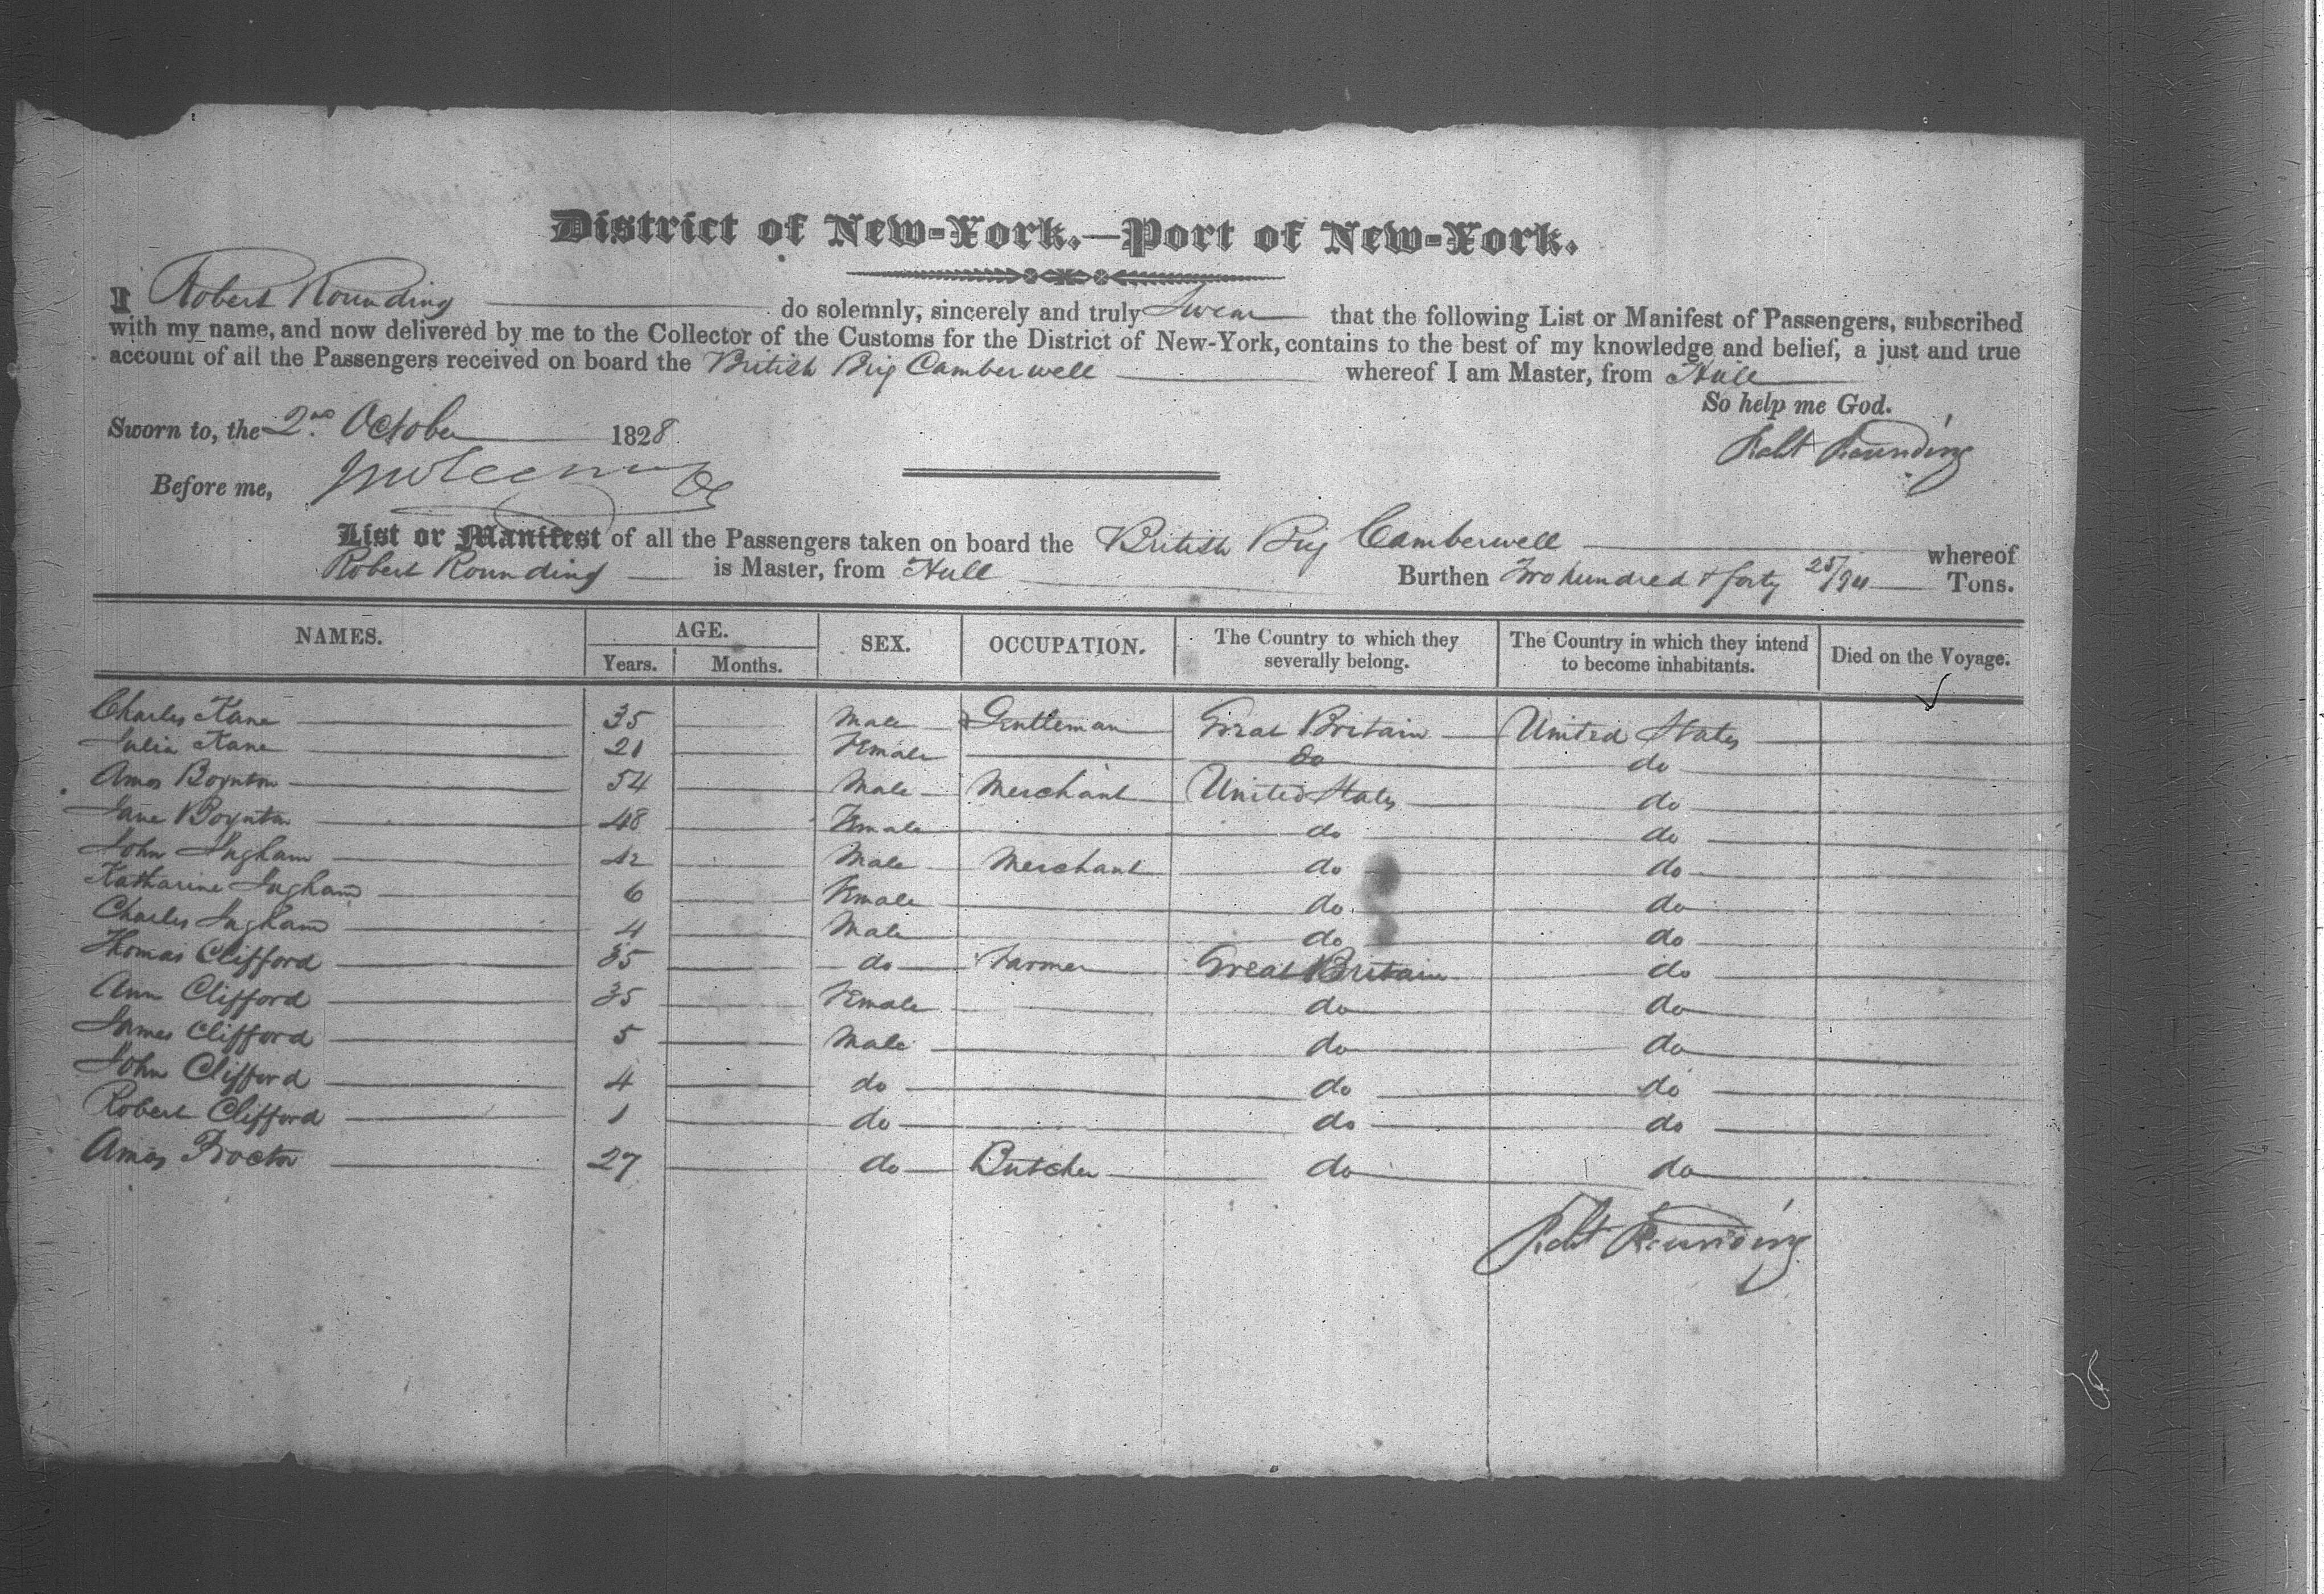 District of New-York.—Port of New-York.
I Robert Rounding do solemnly, sincerely and truly Swear that the following List or Manifest of Passengers, subscribed
with my name, and now delivered by me to the Collector of the Customs for the District of New-York, contains to the best of my knowledge and belief, a just and true
account of all the Passengers received on board the British Brig Camberwell whereof I am Master, from Hull
So help me God.
Sworn to, the 2nd October 1828.
Robt Rounding
Before me,
List or Manifest of all the Passengers taken on board the British Brig Camberwell whereof
Robert Rounding is Master, from Hull Burthen Two hundred & forty 25/94 Tons.
NAMES. AGE. Years. Months. SEX. OCCUPATION. The Country to which they severally belong. The Country in which they intend to become inhabitants. Died on the Voyage.
Charles Kane 35 Male Gentleman Great Britain United States
Julia Kane 21 Female do do
Amos Boynton 54 Male Merchant United States do
Jane Boynton 48 Female do do
John Ingham 42 Male Merchant do do
Katharine Ingham 6 Female do do
Charles Ingham 4 Male do do
Thomas Clifford 35 do Farmer Great Britain do
Ann Clifford 35 Female do do
James Clifford 5 Male do do
John Clifford 4 do do do
Robert Clifford 1 do do do
Amos Procter 27 do Butcher do do
Robt Rounding